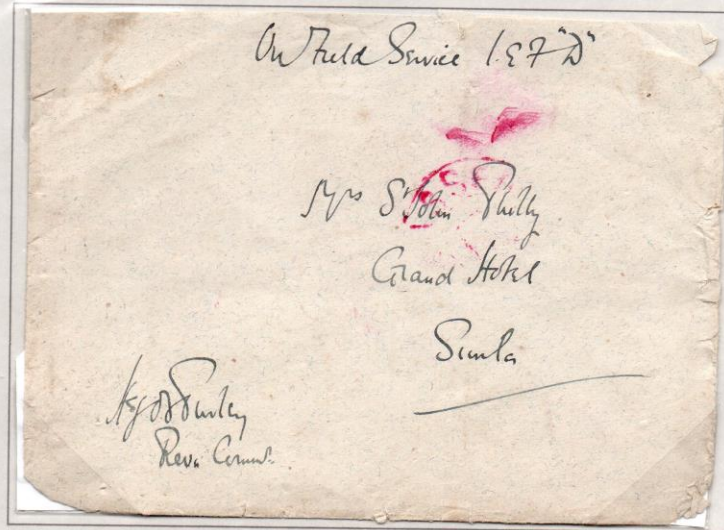 On Field Service I.E.F "D"
Mrs St John Philby
Grand Hotel
Simla
Revu Commr.